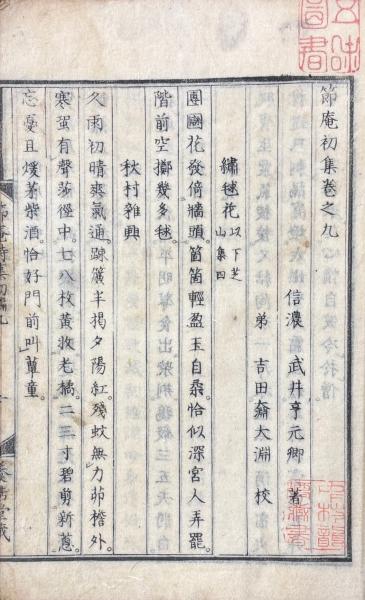 節庵初集卷之九
信濃 武井亨元卿 著
弟 吉田奝大淵 校
繡毬花 以下芝山集四
團團花發倚牆頭。箇箇輕盈玉自柔。恰似深宮人弄罷。
階前空擲幾多毬。
秋村雜興
久雨初晴爽氣通。疎簾半捲夕陽紅。殘蚊無力茆檐外。
寒蛩有聲莎徑中。七八枚黃收老橘。二三寸碧剪新蔥。
忘憂且煖茅柴酒。恰好門前叫蕈童。